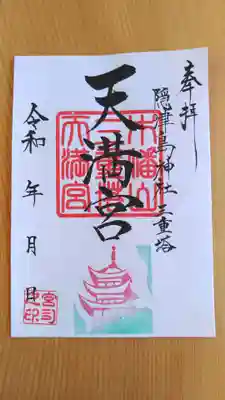 奉拝
隠津島神社 三重塔
天満宮
木幡山
天満宮
令和 年 月 日
宮司
之印